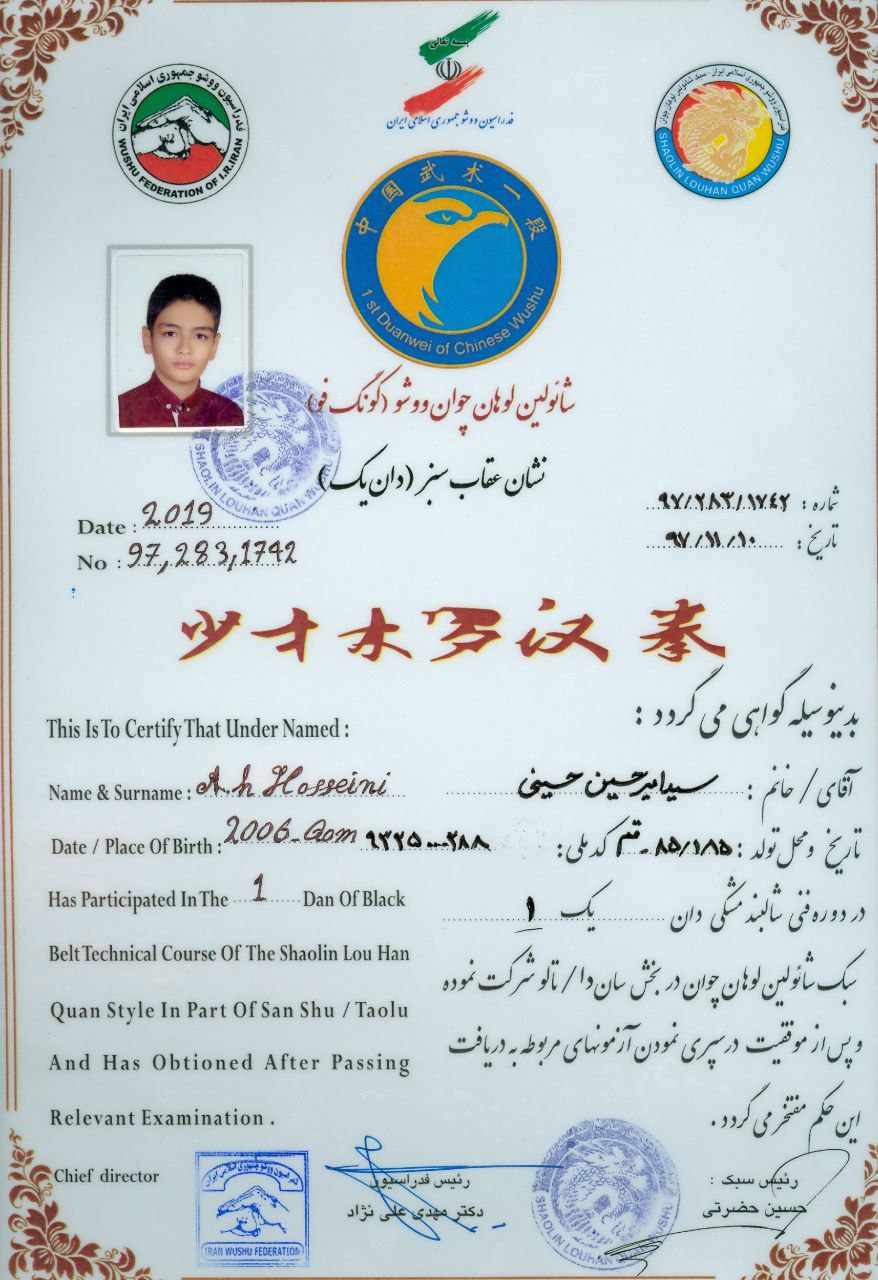 بسمه تعالی
فدراسیون ووشو جمهوری اسلامی ایران
فدراسیون ووشو جمهوری اسلامی ایران
WUSHU FEDERATION OF I.R.IRAN
SHAOLIN LOUHAN QUAN WUSHU
中国武术一段
1 st Duanwei of Chinese Wushu
شائولین لوهان چوان ووشو (گونگ فو)
نشان عقاب سبز (دان یک)
SHAOLIN LOUHAN QUAN WUSHU
شماره : ۹۷/۲۸۳/۱۷۴۲
تاریخ : ۹۷/۱۱/۱۰
Date : 2019
No : 97,283,1742
少才木罗汉拳
بدینوسیله گواهی می گردد :
This Is To Certify That Under Named :
آقای / خانم : سیدامیرحسین حسینی
Name & Surname : A.h Hosseini
تاریخ و محل تولد : ۸۵/۱/۸۵ - قم کد ملی :
Date / Place Of Birth : 2006-Qom
در دوره فنی شالبند مشکی دان یک ۱
Has Participated In The 1 Dan Of Black
سبک شائولین لوهان چوان در بخش سان دا / تالو شرکت نموده
Belt Technical Course Of The Shaolin Lou Han
Quan Style In Part Of San Shu / Taolu
و پس از موفقیت در سپری نمودن آزمونهای مربوطه به دریافت
And Has Obtioned After Passing
این حکم مفتخر می گردد .
Relevant Examination .
Chief director
فدراسیون ووشو جمهوری اسلامی ایران
IRAN WUSHU FEDERATION
رئیس فدراسیون
دکتر مهدی علی نژاد
SHAOLIN LOUHAN QUAN WUSHU
رئیس سبک :
حسین حضرتی